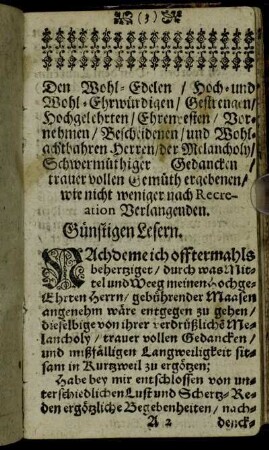 (3)
Den Wohl-Edelen / Hoch- und
Wohl-Ehrwürdigen / Gestrengen /
Hochgelehrten / Ehrenvesten / Vor-
nehmen / Bescheidenen / und Wohl-
achtbahren Herren / der Melancholy /
Schwermüthiger Gedancken
trauer vollen Gemüth ergebenen /
wie nicht weniger nach Recre-
ation Verlangenden.
Günstigen Lesern.
NAchdeme ich offtermahls
behertziget / durch was Mit-
tel und Weeg meinen Hochge-
Ehrten Herrn / gebührender Maasen
angenehm wäre entgegen zu gehen /
dieselbige von ihrer verdrüßlichē Me-
lancholy / trauer vollen Gedancken /
und mißfälligen Langweiligkeit sit-
sam in Kurtzweil zu ergötzen;
Habe bey mir entschlossen von un-
terschiedlichen Lust und Schertz-Re-
den ergötzliche Begebenheiten / nach-
A 2 denck-